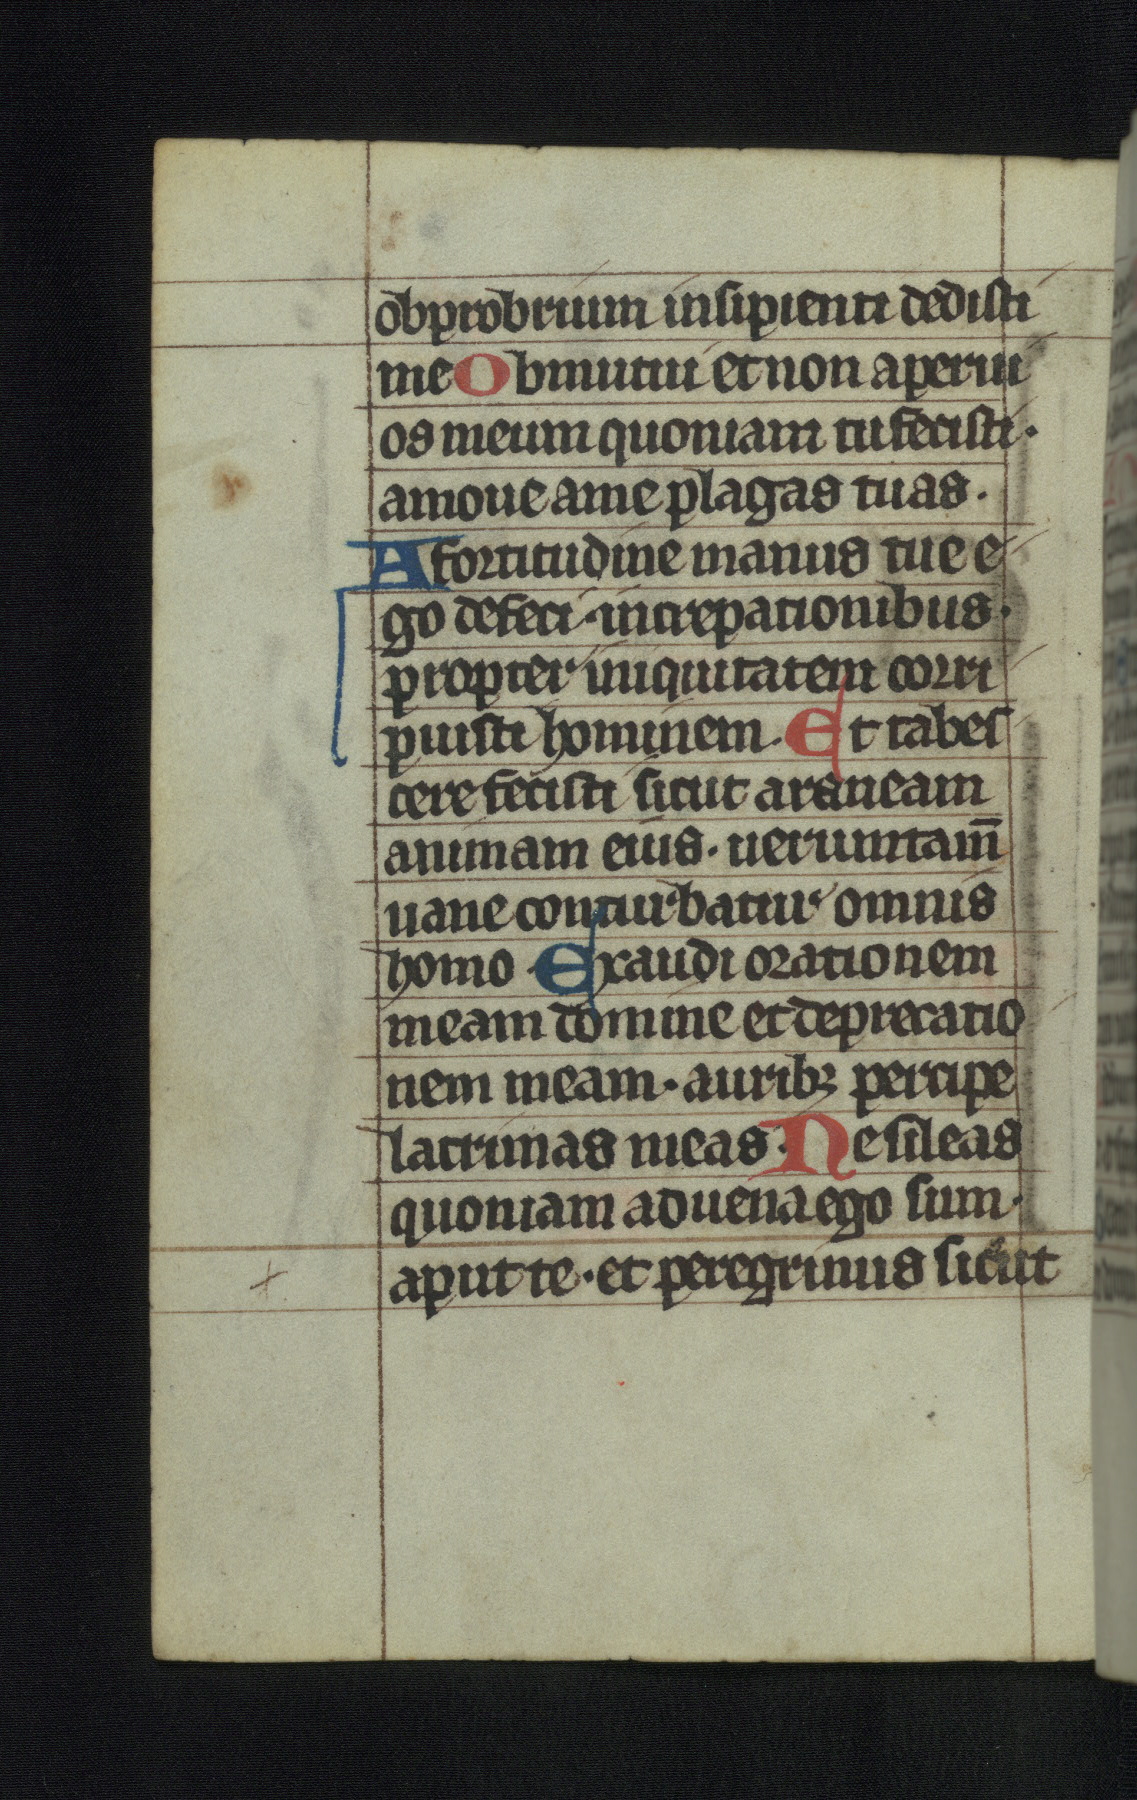 obprobrium insipienti dedisti
me Obmutui et non aperui
os meum quoniam tu fecisti·
amoue a me plagas tuas·
A fortitudine manus tue e
go defeci· increpationibus·
propter iniquitatem corri
puisti hominem· Et tabes
cere fecisti sicut araneam
animam eius· uerumtam̄
uane conturbatur omnis
homo· Exaudi orationem
meam domine et deprecatio
nem meam· auribꝫ percipe
lacrimas meas· Ne sileas
quoniam aduena ego sum·
aput te· et peregrinus sicut